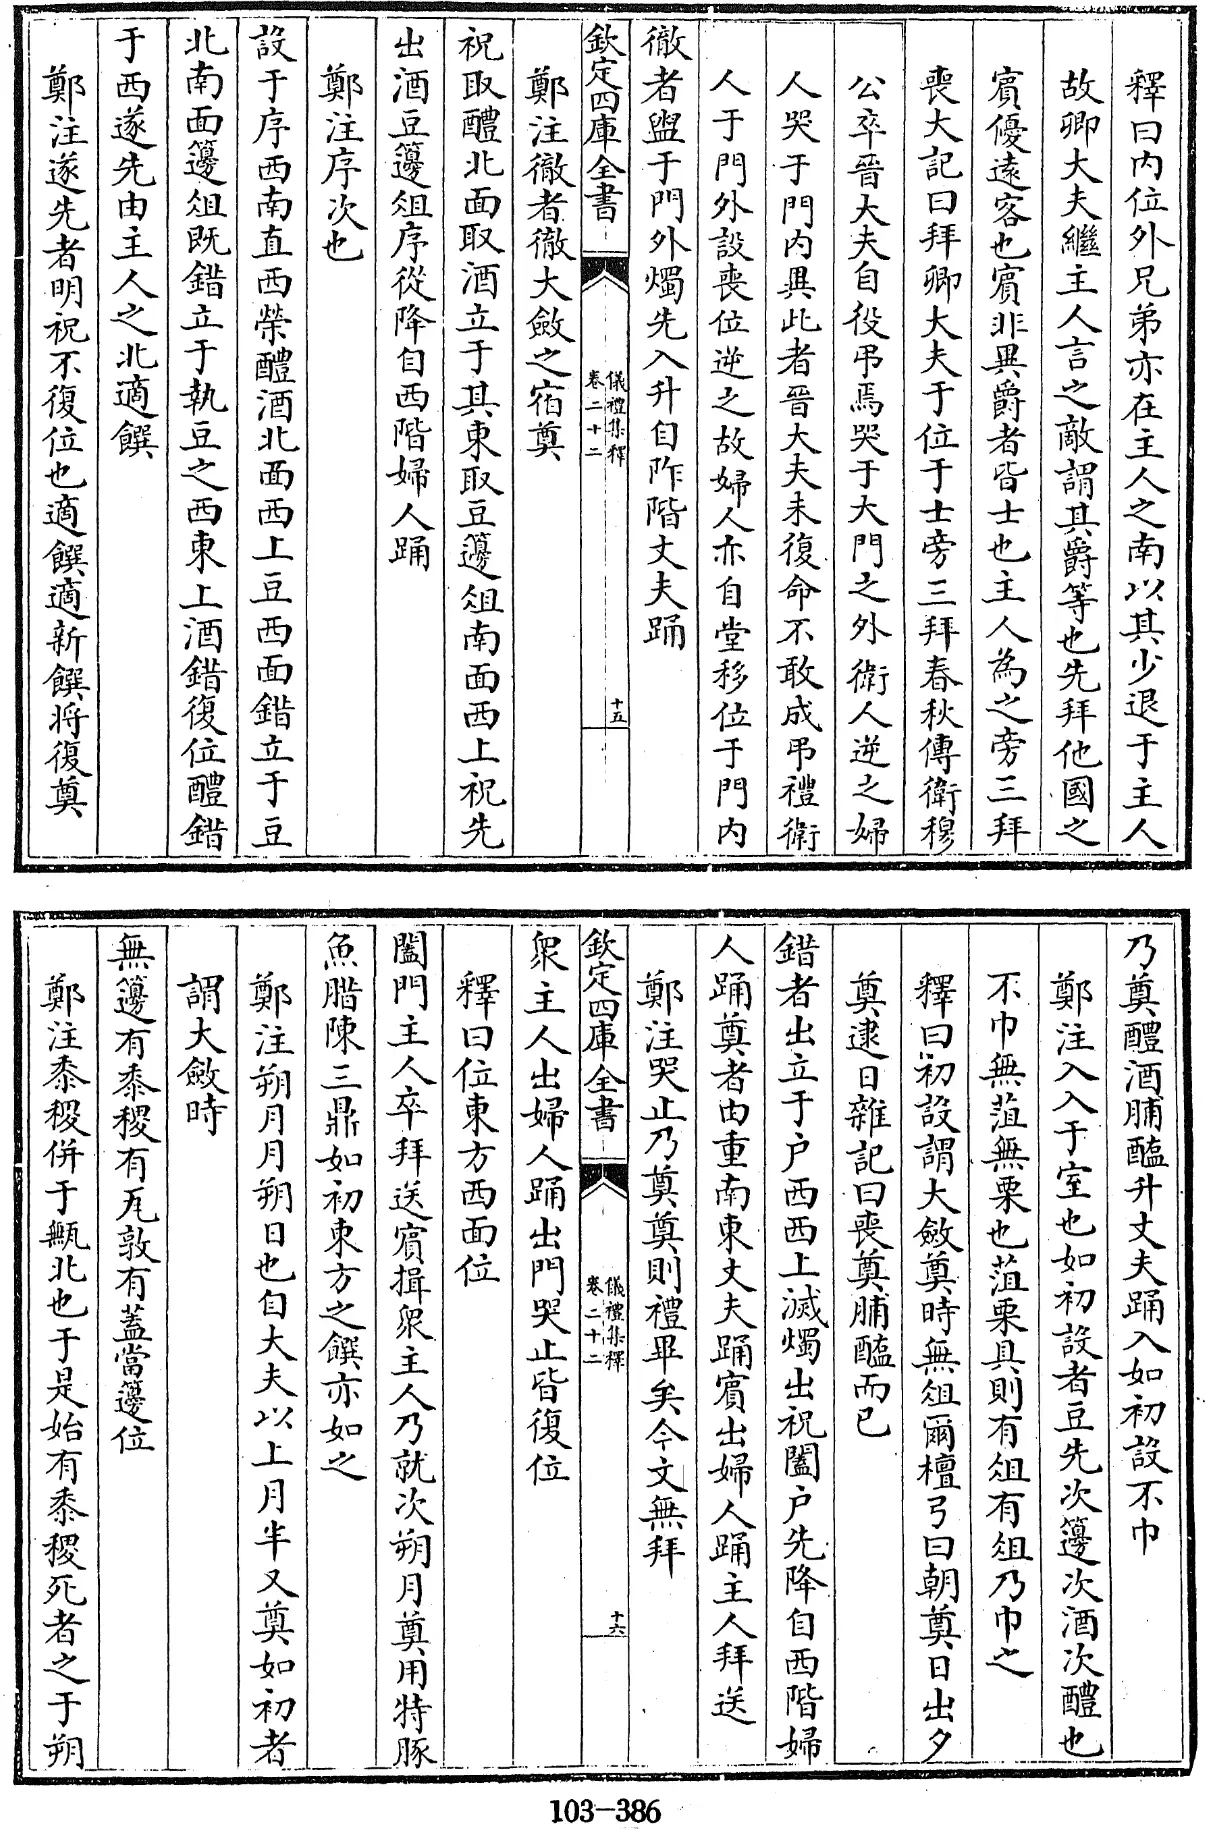 釋曰内位外兄弟亦在主人之南以其少退于主人
故卿大夫繼主人言之敵謂其爵等也先拜他國之
賓優逺客也賓非異爵者皆士也主人為之旁三拜
喪大記曰拜卿大夫于位于士旁三拜春秋傳衛穆
公卒晉大夫自役弔焉哭于大門之外衛人逆之婦
人哭于門内異此者晉大夫未復命不敢成弔禮衛
人于門外設喪位逆之故婦人亦自堂移位于門内
徹者盥于門外燭先入升自阼階丈夫踊
欽定四庫全書
儀禮集釋
卷二十二
十五
鄭注徹者徹大斂之宿奠
祝取醴北面取酒立于其東取豆籩俎南面西上祝先
出酒豆籩俎序從降自西階婦人踊
鄭注序次也
設于序西南直西榮醴酒北面西上豆西面錯立于豆
北南面籩俎既錯立于執豆之西東上酒錯復位醴錯
于西遂先由主人之北適饌
鄭注遂先者明祝不復位也適饌適新饌將復奠
乃奠醴酒脯醢升丈夫踊入如初設不巾
鄭注入入于室也如初設者豆先次籩次酒次醴也
不巾無菹無栗也菹栗具則有俎有俎乃巾之
釋曰初設謂大斂奠時無俎爾檀弓曰朝奠日出夕
奠逮日雜記曰喪奠脯醢而已
錯者出立于户西西上滅燭出祝闔户先降自西階婦
人踊奠者由重南東丈夫踊賓出婦人踊主人拜送
鄭注哭止乃奠奠則禮畢矣今文無拜
欽定四庫全書
儀禮集釋
卷二十二
十六
衆主人出婦人踊出門哭止皆復位
釋曰位東方西面位
闔門主人卒拜送賓揖衆主人乃就次朔月奠用特豚
魚腊陳三鼎如初東方之饌亦如之
鄭注朔月月朔日也自大夫以上月半又奠如初者
謂大斂時
無籩有黍稷有瓦敦有蓋當籩位
鄭注黍稷併于甒北也于是始有黍稷死者之于朔
103-386